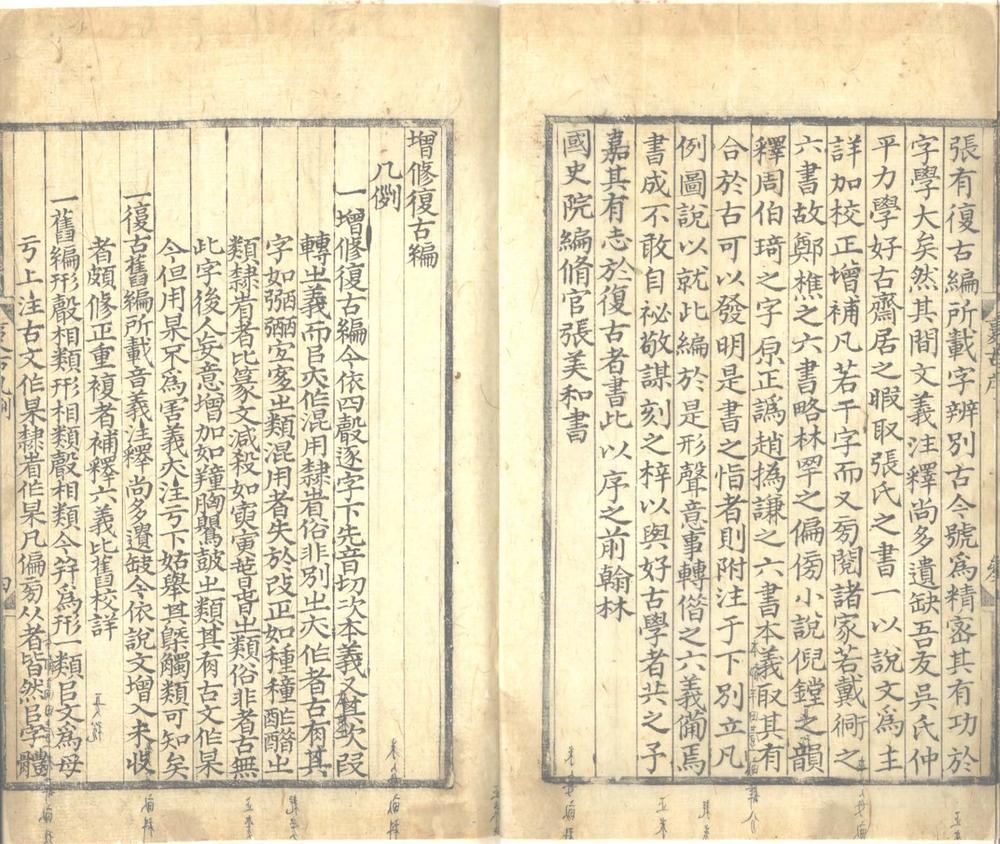 張有復古編所載字辨別古今號為精密其有功於
字學大矣然其間文義注釋尚多遺缺吾友吳氏仲
平力學好古齋居之暇取張氏之書一以說文為主
詳加校正增補凡若干字而又旁閱諸家若戴侗之
六書故鄭樵之六書略林罕之偏傍小說倪鏜之韻
釋周伯琦之字原正譌趙撝謙之六書本義取其有
合於古可以發明是書之恉者則附注于下別立凡
例圖說以就此編於是形聲意事轉借之六義備焉
書成不敢自祕敬謀刻之梓以與好古學者共之予
嘉其有志於復古者書此以序之前翰林
國史院編脩官張美和書
增修復古編
凡例
一增修復古編今依四聲逐字下先音切次本義又其次叚
轉㞢義而㠯夾作混用隸者俗非別㞢夾作者古有其
字如弼㢸㝎㝔㞢類混用者失於攷正如種穜酢醋㞢
類隸者者比篆文減殺如寅寅㫺昔㞢類俗非者古無
此字後人妄意增加如犝胸鷪鼓㞢類其有古文作杲
今但用杲不為害義夾注亏下姑舉其槩觸類可知矣
一復古舊編所載音義注釋尚多遺缺今依說文增入未收
者頗修正重複者補釋六義比舊校詳
一舊編形聲相類形相類聲相類今并為形一類㠯文為母
亏上注古文作杲隸者作杲凡偏旁从者皆然㠯字體